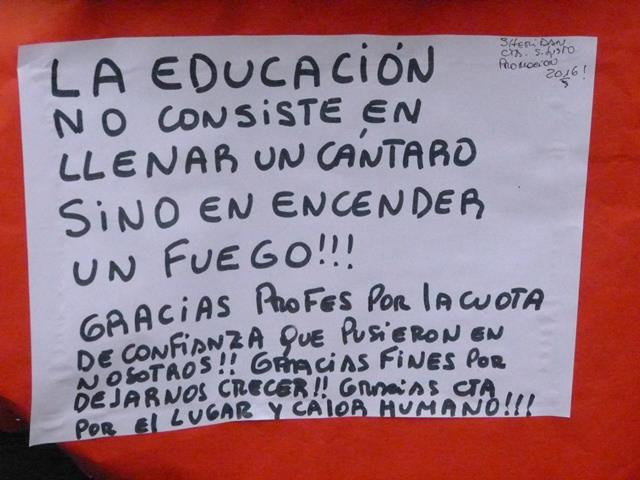 LA EDUCACIÓN
NO CONSISTE EN
LLENAR UN CÁNTARO
SINO EN ENCENDER
UN FUEGO!!!
GRACIAS PROFES POR LA CUOTA
DE CONFIANZA QUE PUSIERON EN
NOSOTROS!! GRACIAS FINES POR
DEJARNOS CRECER!! GRACIAS CTA
POR EL LUGAR Y CALOR HUMANO!!!
SHERIDAN
PROMOCION
2016!